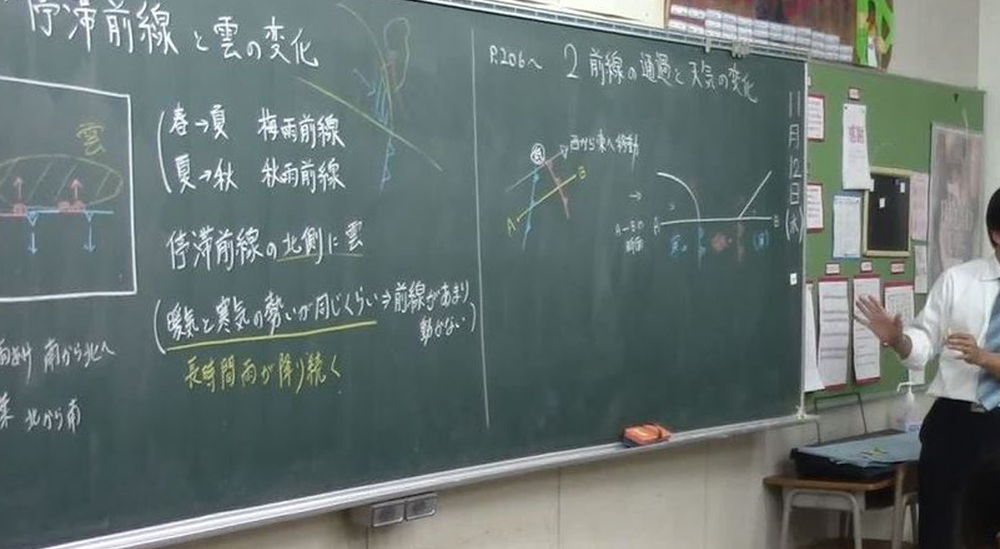 停滞前線と雲の変化
雲
春→夏 梅雨前線
夏→秋 秋雨前線
停滞前線の北側に雲
(暖気と寒気の勢いが同じくらい⇒前線があまり
動かない)
長時間雨が降り続く
南から北へ
北から南
P.206〜 2 前線の通過と天気の変化
低
西から東へ移動
A
B
→
A−Bの
断面
A
B
11月12日(水)